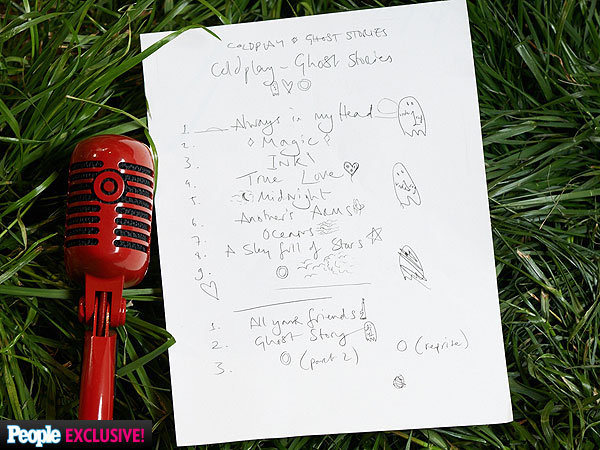 COLDPLAY GHOST STORIES
Coldplay - Ghost Stories
1. Always in my Head
2. Magic
3. INK
4. True Love
5. Midnight
6. Another's Arms
7. Oceans
8. A Sky full of Stars
9. O
1. All your friends
2. Ghost Story
3. O (part 2) O (reprise)
People EXCLUSIVE!